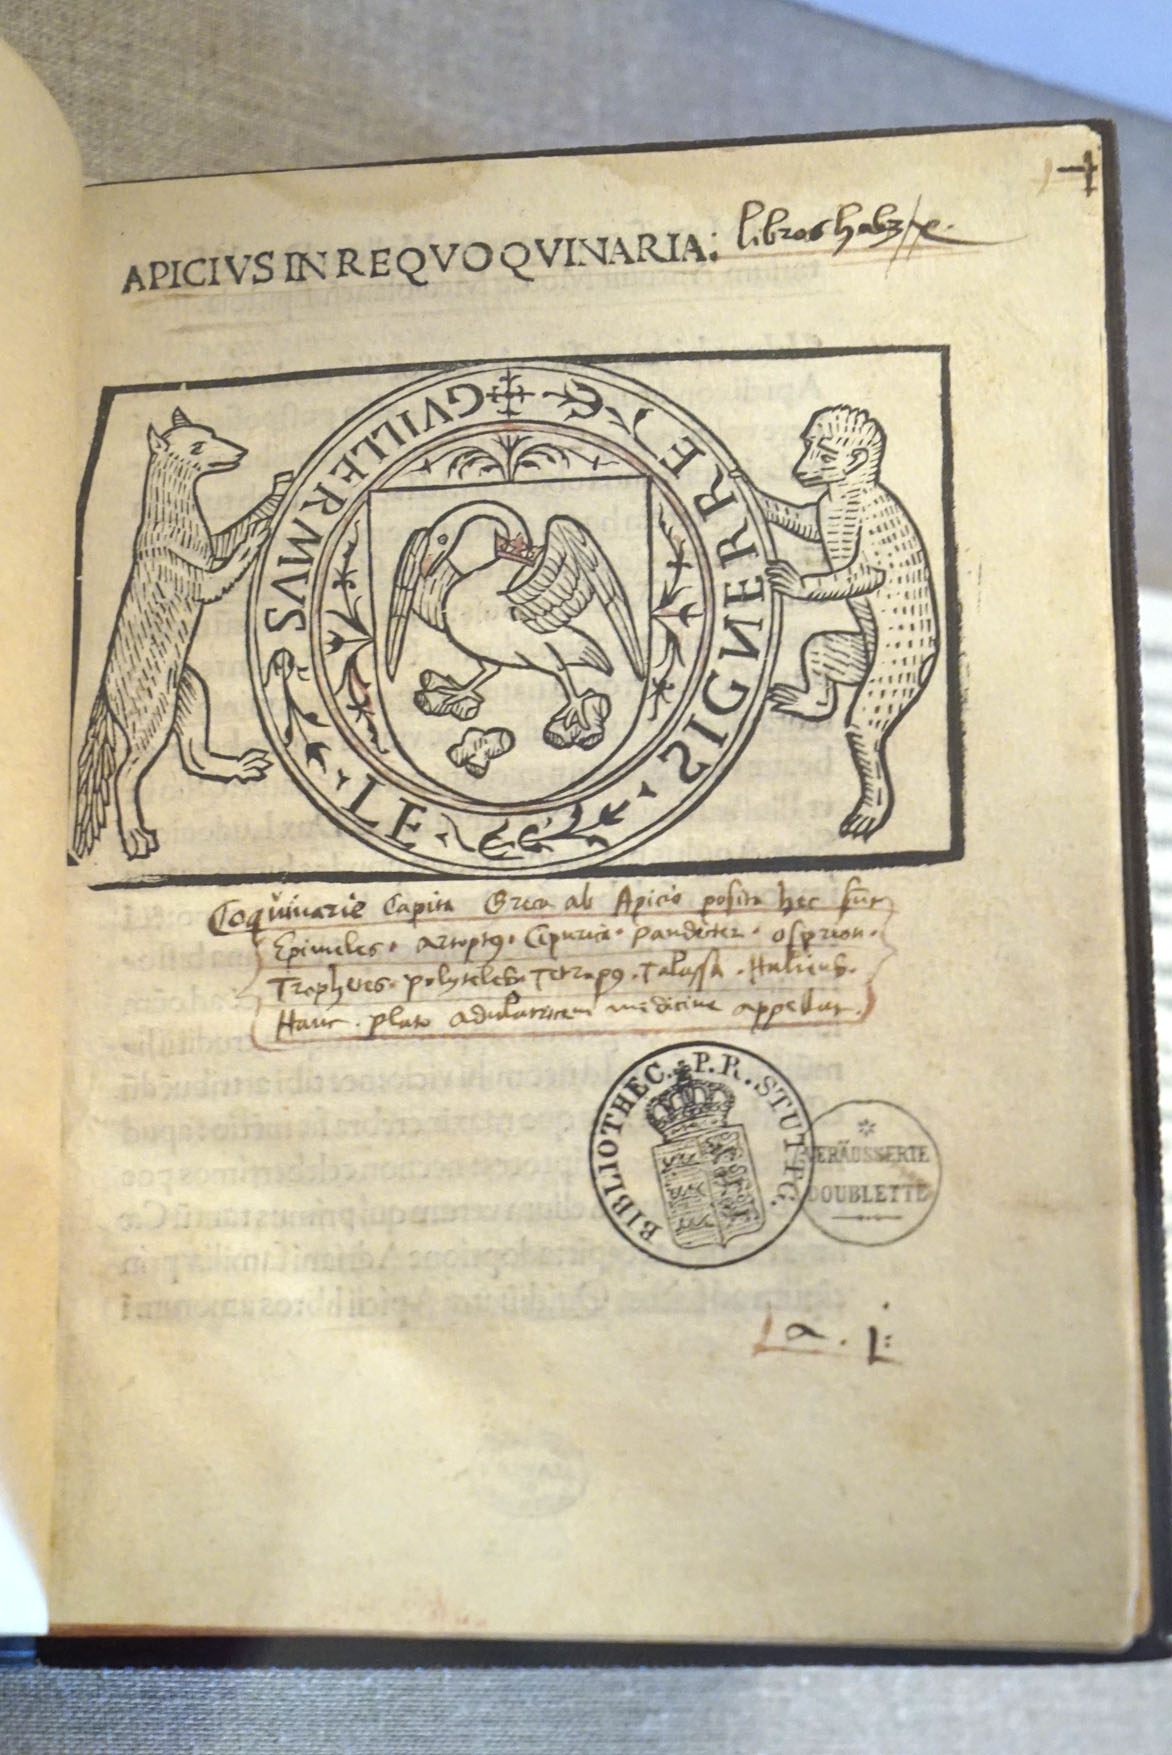 APICIVS IN RE QVOQVINARIA: libros habz x.
GVILLERMVS · LE · SIGNERRE
Coquinarie Capita Greca ab Apicio posita hec sunt
Epimeles · artoptus · Cepurica · Pandecter · osprion ·
Trophetes · polyteles · Tetrapus · Talassa · Halieus ·
Hanc · plato adulatricem medicine appellat
BIBLIOTHEC. P. R. STUTTG.
VERÄUSSERTE
DOUBLETTE
a. i: